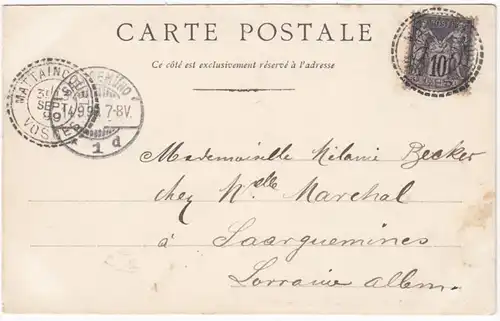 CARTE POSTALE
Ce côté est exclusivement réservé à l'adresse
10
MATTAINCOURT
VOSGES
14.9.99. 7-8V.
1 d
Mademoiselle Mélanie Becker
chez Mlle Marchal
à Saarguemines
Lorraine allem.